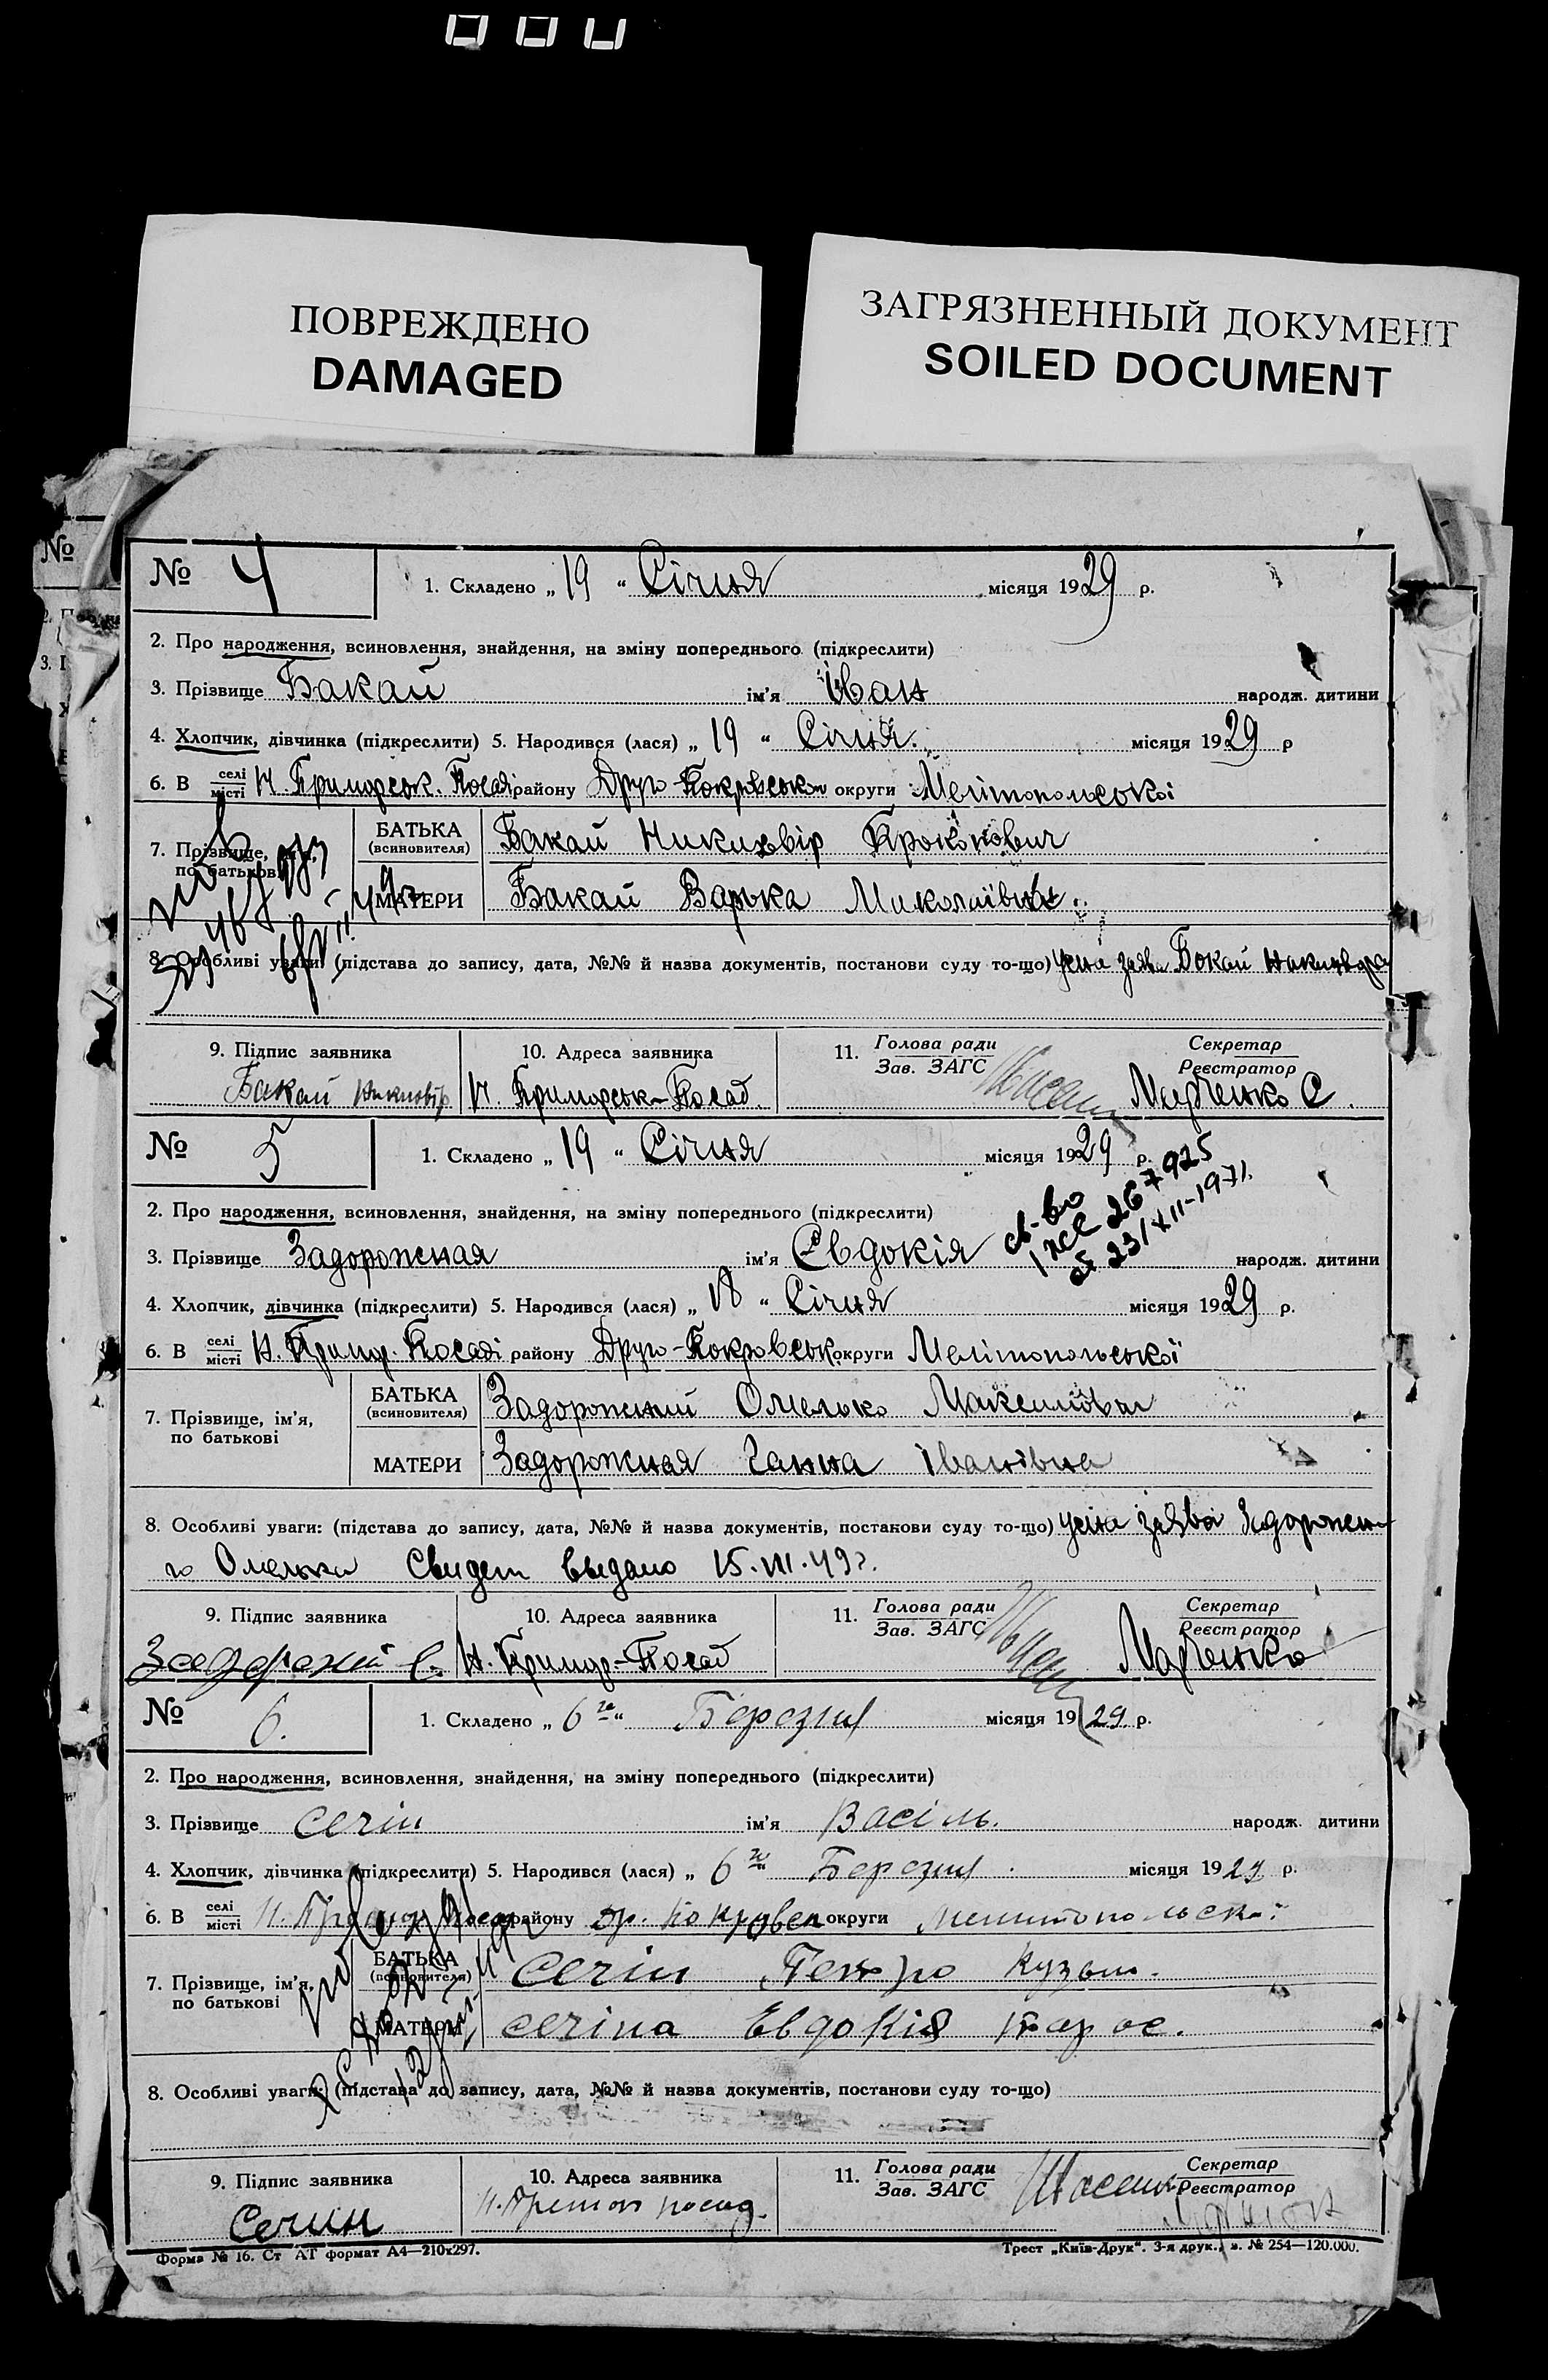 ПОВРЕЖДЕНО
DAMAGED
ЗАГРЯЗНЕННЫЙ ДОКУМЕНТ
SOILED DOCUMENT
№
№ 4
1. Складено „19“ Січня місяця 1929 р.
2. Про народження, всиновлення, знайдення, на зміну попереднього (підкреслити)
3. Прізвище Бакай ім'я Іван народж. дитини
4. Хлопчик, дівчинка (підкреслити) 5. Народився (лася) „19“ Січня. місяця 1929 р
6. В селі місті Н. Приморськ. Посаді району Друго-Покрвськ округи Мелітопольської
7. Прізвище,
по батькові
БАТЬКА
(всиновителя)
Бакай Никиф
МАТЕРИ
Бакай Варька Миколаївна
8. Особливі уваги: (підстава до запису, дата, №№ й назва документів, постанови суду то-що) усна заява Бокай
9. Підпис заявника
Бакай
10. Адреса заявника
Н. Приморськ-Посад.
11. Голова ради
Зав. ЗАГС
Секретар
Реєстратор
Марченко С.
№ 5
1. Складено „19“ Січня місяця 1929 р.
св-во
267925
23/XII-1971.
2. Про народження, всиновлення, знайдення, на зміну попереднього (підкреслити)
3. Прізвище Задорожная ім'я Євдокія народж. дитини
4. Хлопчик, дівчинка (підкреслити) 5. Народився (лася) „18“ Січня місяця 1929 р.
6. В селі місті Н. Примор. Посаді району Друго-Покровськ округи Мелітопольської
7. Прізвище, ім'я,
по батькові
БАТЬКА
(всиновителя)
Задорожний Омелько Максимович
МАТЕРИ
Задорожная Ганна Іванівна
8. Особливі уваги: (підстава до запису, дата, №№ й назва документів, постанови суду то-що) усна заява Задорожно
го Омелька Свидет выдано 15.VIII.49г.
9. Підпис заявника
10. Адреса заявника
Н. Примор-Посад
11. Голова ради
Зав. ЗАГС
Секретар
Реєстратор
Марченко
№ 6.
1. Складено „6го“ Березня місяця 1929 р.
2. Про народження, всиновлення, знайдення, на зміну попереднього (підкреслити)
3. Прізвище Сечін ім'я Васіль. народж. дитини
4. Хлопчик, дівчинка (підкреслити) 5. Народився (лася) „6го“ Березня місяця 1929 р.
6. В селі місті Н. району др. Покровск округи Мелитопольскої
7. Прізвище, ім'я,
по батькові
БАТЬКА
(всиновителя)
Сечін Петро Кузьм.
МАТЕРИ
Сечіна Евдокія
8. Особливі уваги: (підстава до запису, дата, №№ й назва документів, постанови суду то-що)
9. Підпис заявника
Сечин
10. Адреса заявника
посад.
11. Голова ради
Зав. ЗАГС
Секретар
Реєстратор
Форма № 16. Ст АТ формат А4—210х297.
Трест „Київ-Друк“. 3-я друк., з. № 254—120.000.